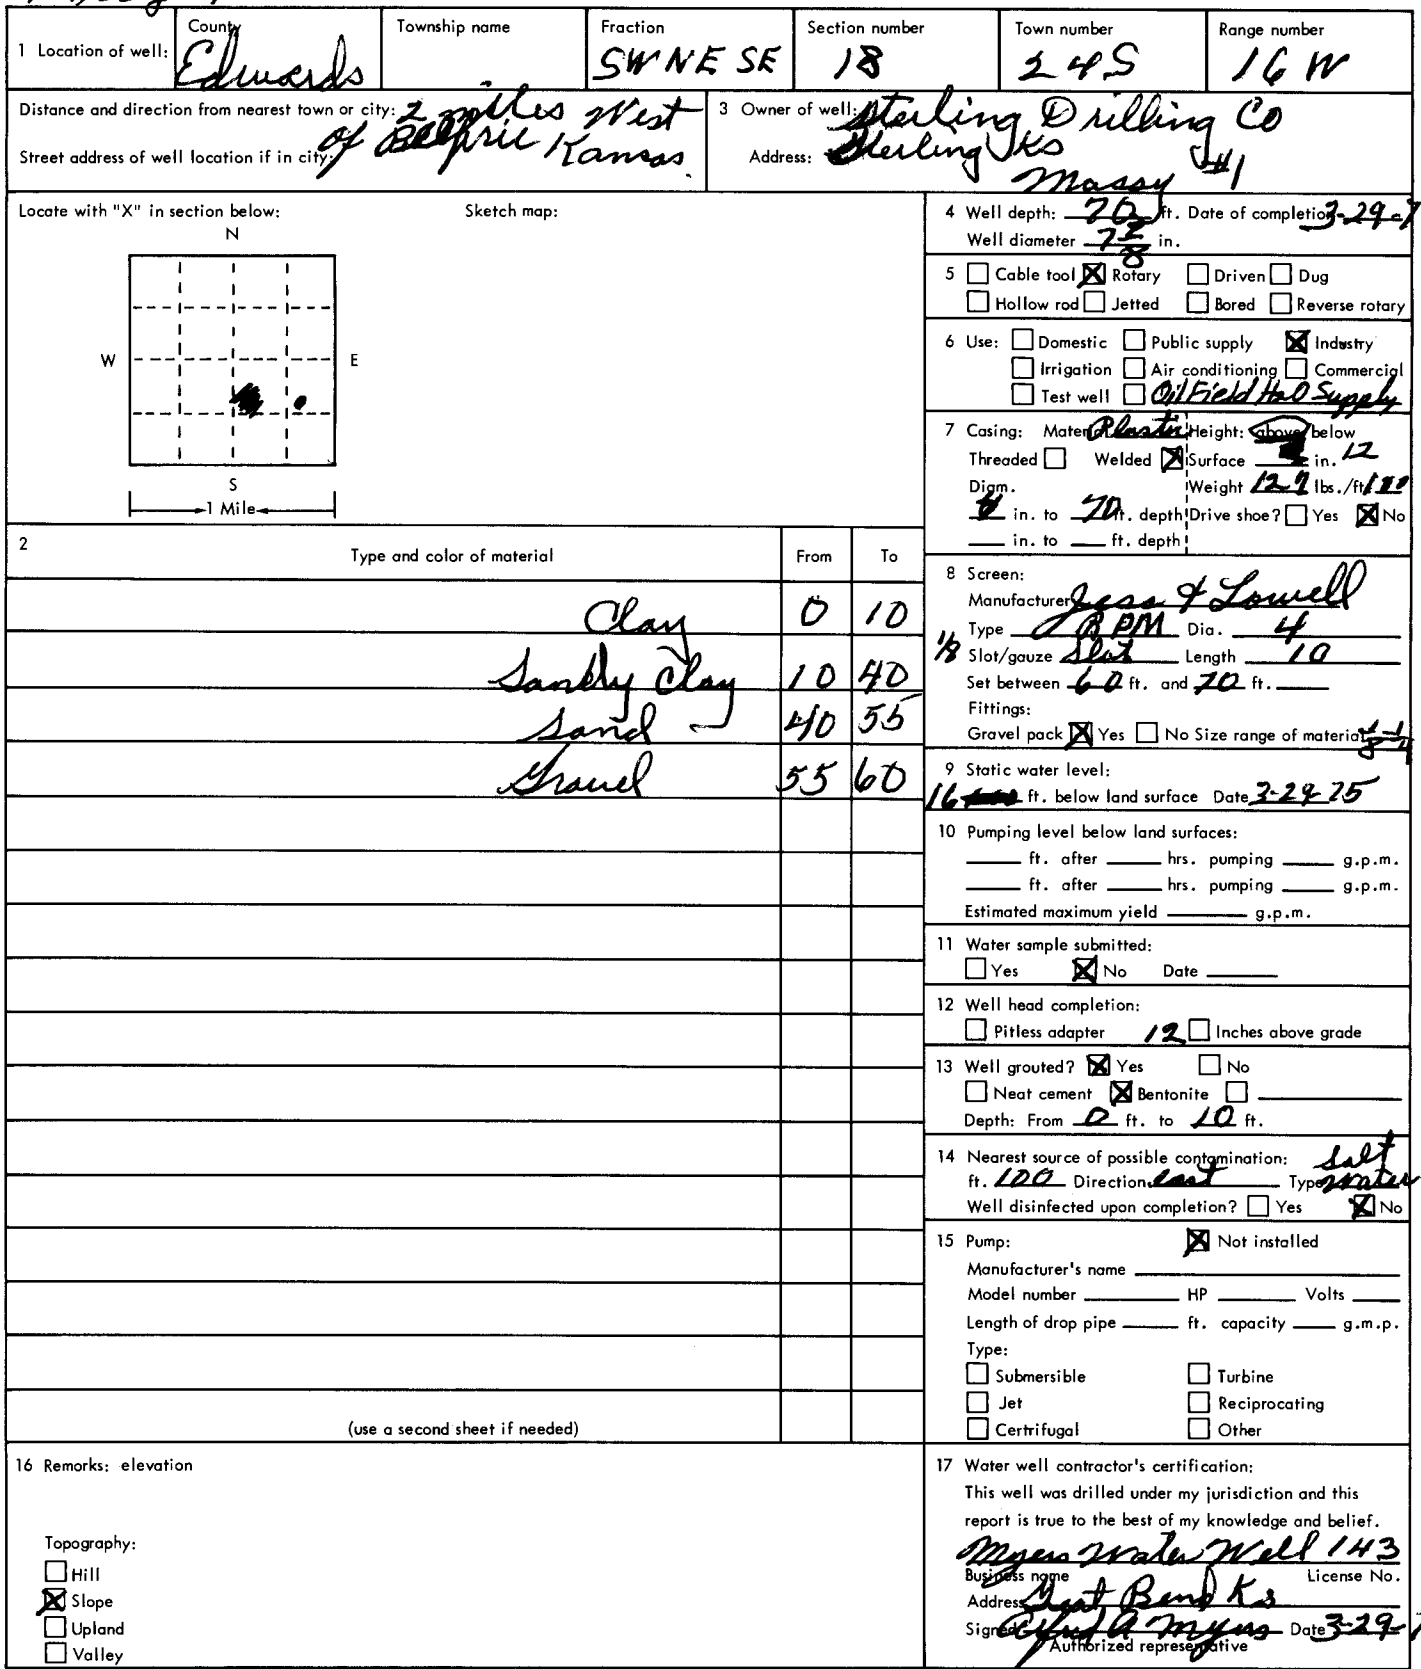 County Township name Fraction Section number Town number Range number
1 Location of well: Edwards SW NE SE 18 24S 16W
Distance and direction from nearest town or city: 2 miles West
of Belpre Kansas
Street address of well location if in city:
3 Owner of well: Sterling Drilling Co
Address: Sterling Ks
Massy #1
Locate with "X" in section below: Sketch map:
N
W E
S
1 Mile
4 Well depth: 70 ft. Date of completion 3-29-7
Well diameter 7 7/8 in.
5 Cable tool X Rotary Driven Dug
Hollow rod Jetted Bored Reverse rotary
6 Use: Domestic Public supply X Industry
Irrigation Air conditioning Commercial
Test well Oil Field H2O Supply
7 Casing: Material Plastic Height: above/below
Threaded Welded X Surface in. 12
Diam. Weight lbs./ft.
in. to 70 ft. depth Drive shoe? Yes X No
in. to ft. depth
2 Type and color of material From To
Clay 0 10
Sandly Clay 10 40
Sand 40 55
Gravel 55 60
(use a second sheet if needed)
8 Screen:
Manufacturer Jess & Lowell
Type RPM Dia. 4
1/8 Slot/gauze Slot Length 10
Set between 60 ft. and 70 ft.
Fittings:
Gravel pack X Yes No Size range of material 1/8-1/4
9 Static water level:
16 ft. below land surface Date 3-29-75
10 Pumping level below land surfaces:
ft. after hrs. pumping g.p.m.
ft. after hrs. pumping g.p.m.
Estimated maximum yield g.p.m.
11 Water sample submitted:
Yes X No Date
12 Well head completion:
Pitless adapter 12 Inches above grade
13 Well grouted? X Yes No
Neat cement X Bentonite
Depth: From 0 ft. to 10 ft.
14 Nearest source of possible contamination: Salt
ft. 100 Direction east Type water
Well disinfected upon completion? Yes X No
15 Pump: X Not installed
Manufacturer's name
Model number HP Volts
Length of drop pipe ft. capacity g.m.p.
Type:
Submersible Turbine
Jet Reciprocating
Certrifugal Other
16 Remarks: elevation
Topography:
Hill
X Slope
Upland
Valley
17 Water well contractor's certification:
This well was drilled under my jurisdiction and this
report is true to the best of my knowledge and belief.
Myers Water Well 143
Business name License No.
Address Great Bend Ks
Signed Alfred A Myers Date 3-29-7
Authorized representative